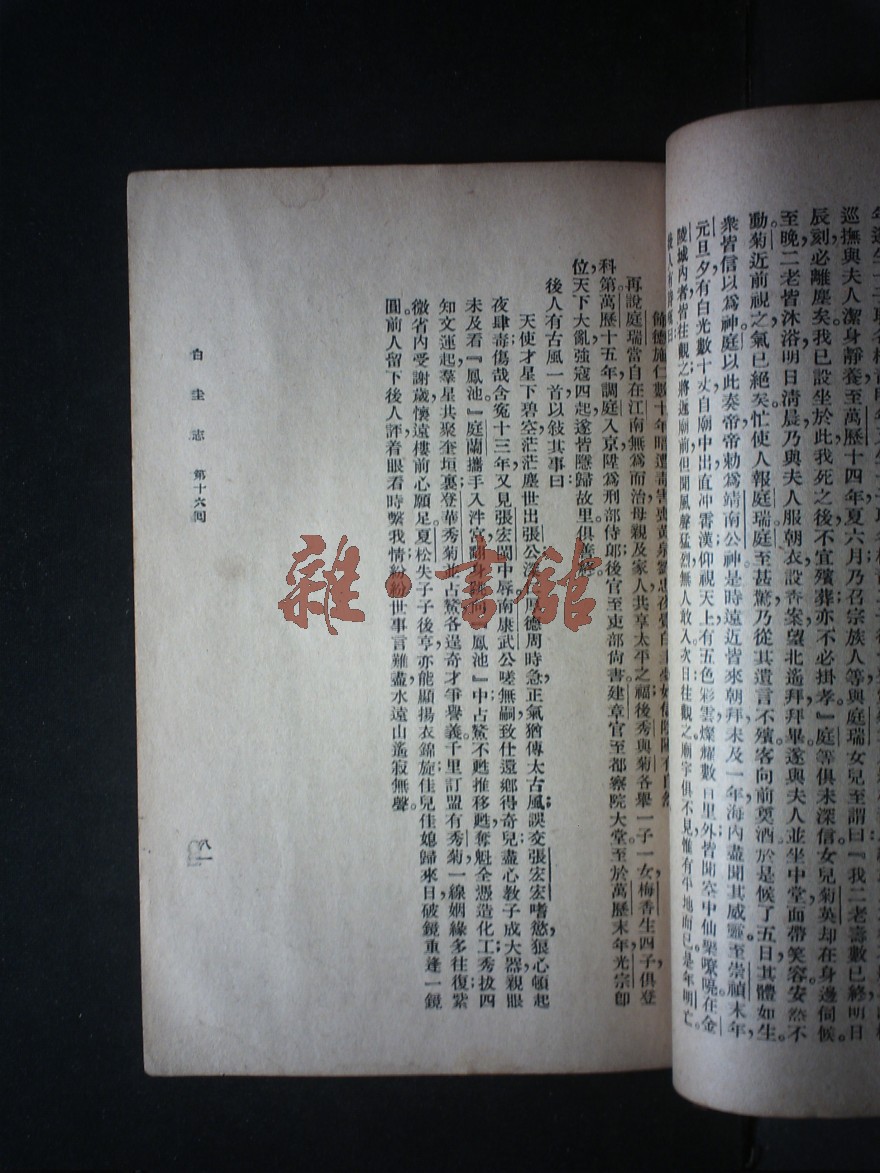 巡撫與夫人潔身靜養至萬歷十四年夏六月乃召宗族人等與庭瑞女兒至謂曰『我二老壽數已終明日
辰刻必離塵矣我已設坐於此我死之後不宜殯葬亦不必掛孝』庭等俱未深信女兒菊英却在身邊伺候
至晚二老皆沐浴明日淸晨乃與夫人服朝衣設香案望北遙拜拜畢遂與夫人並坐中堂面帶笑容安然不
動菊近前視之氣已絕矣忙使人報庭瑞庭至甚驚乃從其遺言不殯客向前奠酒於是候了五日其體如生
衆皆信以爲神庭以此奏帝帝勅爲靖南公神是時遠近皆來朝拜未及一年海內盡聞其威靈至崇禎末年
元旦夕有白光數十丈自廟中出直冲霄漢仰視天上有五色彩雲燦耀數日里外皆聞空中仙樂嘹喨在金
陵城內者皆往觀之將近廟前但聞風聲猛烈無人敢入次日往觀之廟宇俱不見惟有平地而已是年明亡
再說庭瑞當自在江南無爲而治母親及家人共享太平之福後秀與菊各舉一子一女梅香生四子俱登
科第萬歷十五年調庭入京陞爲刑部侍郞後官至吏部尙書建章官至都察院大堂至於萬歷末年光宗卽
位天下大亂強寇四起遂皆隱歸故里俱善終
後人有古風一首以敍其事曰
天使才星下碧空茫茫塵世出張公深厚德周時急正氣猶傳太古風誤交張宏宏嗜慾狠心頓起
夜肆毒傷哉含寃十三年又見張宏閫中辱南康武公嗟無嗣致仕還鄉得奇兒盡心敎子成大器親眼
未及看『鳳池』庭蘭攜手入泮宮『鳳池』中占鰲不甦推移甦奪魁全憑造化工秀拔四
知文運起羣星共聚奎垣裏登華秀菊北占鰲各逞奇才爭譽義千里訂盟有秀菊一線姻緣多往復紫
微省內受謝歲懷遠樓前心願足夏松失子子後亨亦能顯揚衣錦旋佳兒佳媳歸來日破鏡重逢一鏡
圓前人留下後人評着眼看時繫我情紛紛世事言難盡水遠山遙寂無聲
白圭志 第十六回
八一
雜·書館